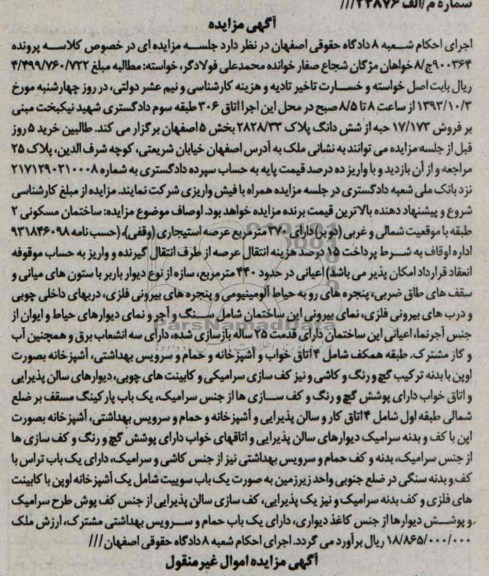 شماره م/الف ۲۲۸۷۶///
آگهی مزایده
اجرای احکام شعبه ۸ دادگاه حقوقی اصفهان در نظر دارد جلسه مزایده ای در خصوص کلاسه پرونده
۹۰۰۳۶۴ج/۸ خواهان مژگان شجاع صفار خوانده محمدعلی فولادگر، خواسته: مطالبه مبلغ ۴/۴۹۹/۷۶۰/۷۲۲
ریال بابت اصل خواسته و خسارت تاخیر تادیه و هزینه کارشناسی و نیم عشر دولتی، در روز چهارشنبه مورخ
۱۳۹۳/۱۰/۳ از ساعت ۸ تا ۸/۵ صبح در محل این اجرا اتاق ۳۰۶ طبقه سوم دادگستری شهید نیکبخت مبنی
بر فروش ۱۷/۱۷۳ حبه از شش دانگ پلاک ۲۸۲۸/۳۳ بخش ۵ اصفهان برگزار می کند. طالبین خرید ۵ روز
قبل از جلسه مزایده می توانند به نشانی ملک به آدرس اصفهان خیابان شریعتی، کوچه شرف الدین، پلاک ۲۵
مراجعه و از آن بازدید و با واریز ده درصد قیمت پایه به حساب سپرده دادگستری به شماره ۲۱۷۱۲۹۰۲۱۰۰۰۸
نزد بانک ملی شعبه دادگستری در جلسه مزایده همراه با فیش واریزی شرکت نمایند. مزایده از مبلغ کارشناسی
شروع و پیشنهاد دهنده بالاترین قیمت برنده مزایده خواهد بود. اوصاف موضوع مزایده: ساختمان مسکونی ۲
طبقه با موقعیت شمالی و غربی (دو بر) دارای ۳۷۰ متر مربع عرصه استیجاری (وقفی)، (حسب نامه ۹۳۱۸۴۶۰۹۸
اداره اوقاف به شرط پرداخت ۱۵ درصد هزینه انتقال عرصه از طرف انتقال گیرنده و واریز به حساب موقوفه
انعقاد قرارداد امکان پذیر می باشد) اعیانی در حدود ۴۴۰ مترمربع، سازه از نوع دیوار باربر با ستون های میانی و
سقف های طاق ضربی، پنجره های رو به حیاط آلومینیومی و پنجره های بیرونی فلزی، دربهای داخلی چوبی
و درب های بیرونی فلزی، نمای بیرونی این ساختمان شامل سنگ و آجر و نمای دیوارهای حیاط و ایوان از
جنس آجرنما، اعیانی این ساختمان دارای قدمت ۲۵ ساله بازسازی شده، دارای سه انشعاب برق و همچنین آب
و گاز مشترک. طبقه همکف شامل ۴ اتاق خواب و آشپزخانه و حمام و سرویس بهداشتی، آشپزخانه بصورت
اوپن با بدنه ترکیب گچ و رنگ و کاشی و نیز کف سازی سرامیکی و کابینت های چوبی، دیوارهای سالن پذیرایی
و اتاق خواب دارای پوشش گچ و رنگ و کف سازی ها از جنس سرامیک، یک باب پارکینگ مسقف بر ضلع
شمالی طبقه اول شامل ۴ اتاق کار و سالن پذیرایی و آشپزخانه و حمام و سرویس بهداشتی، آشپزخانه بصورت
اپن با کف و بدنه سرامیک دیوارهای سالن پذیرایی و اتاقهای خواب دارای پوشش گچ و رنگ و کف سازی ها
از جنس سرامیک، بدنه و کف حمام و سرویس بهداشتی نیز از جنس کاشی و سرامیک، دارای یک باب تراس با
کف و بدنه سنگی در ضلع جنوبی واحد زیرزمین به صورت یک باب سوییت شامل یک آشپزخانه اوپن با کابینت
های فلزی و کف بدنه سرامیک و نیز یک پذیرایی، کف سازی سالن پذیرایی از جنس کف پوش طرح سرامیک
و پوشش دیوارها از جنس کاغذ دیواری، دارای یک باب حمام و سرویس بهداشتی مشترک، ارزش ملک
۱۸/۸۶۵/۰۰۰/۰۰۰ ریال برآورد می گردد. اجرای احکام شعبه ۸ دادگاه حقوقی اصفهان///
آگهی مزایده اموال غیر منقول